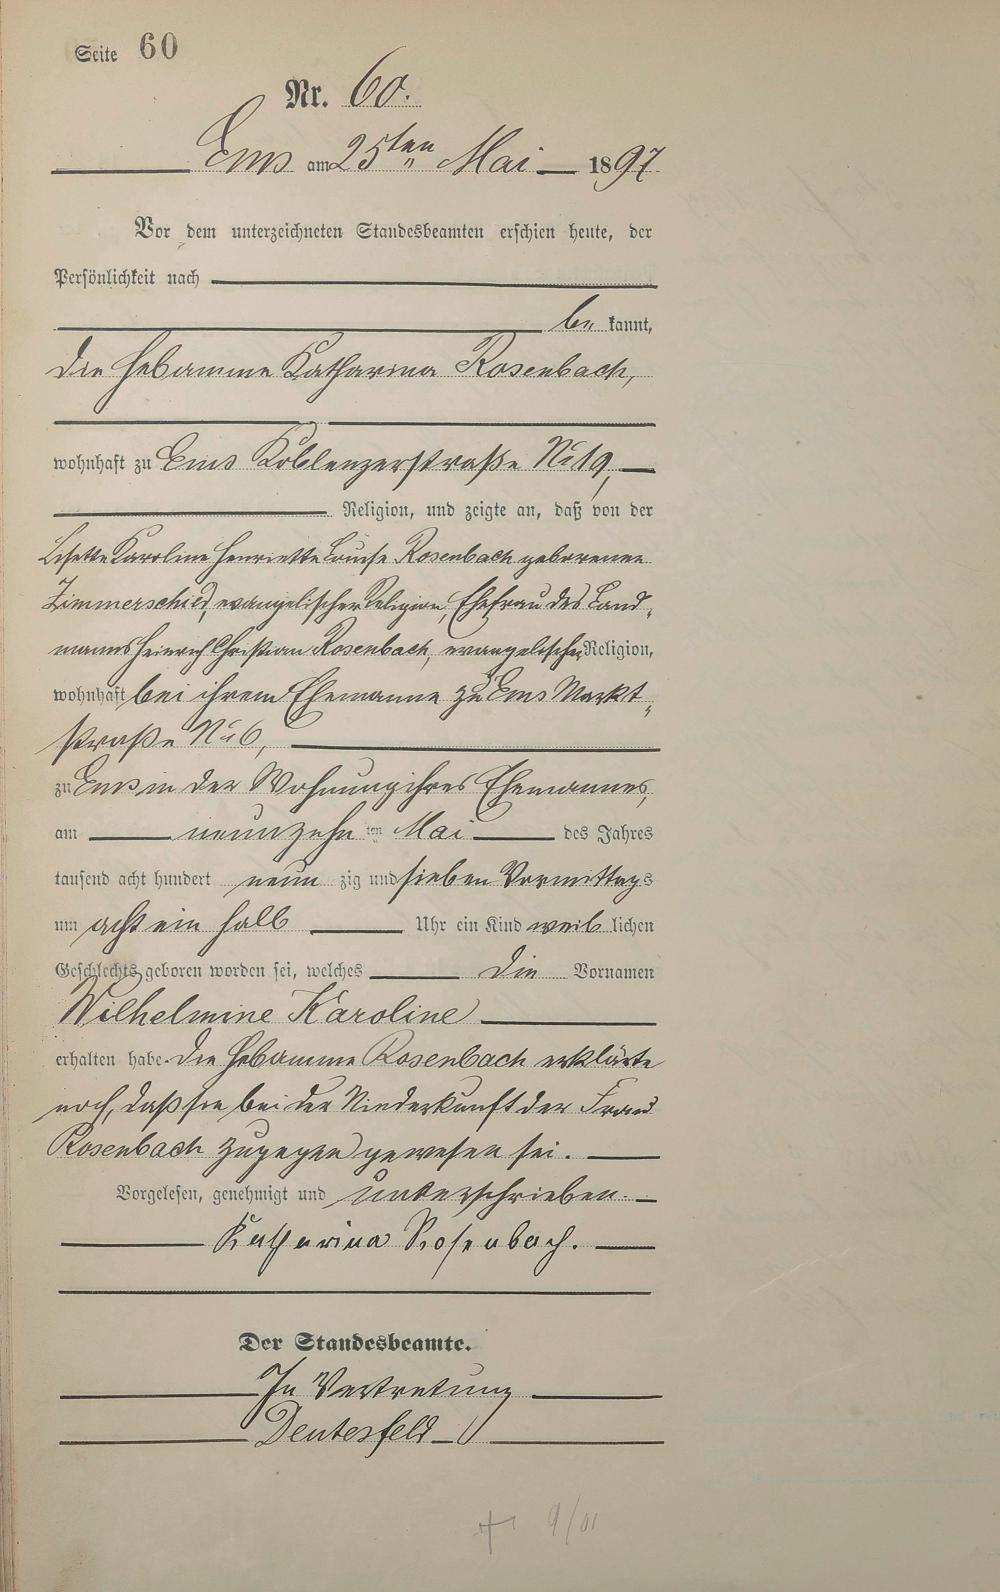 Seite 60
Nr. 60.
Ems am 25ten Mai 1897
Vor dem unterzeichneten Standesbeamten erschien heute, der
Persönlichkeit nach
be kannt,
die Hebamme Katharina Rosenbach,
wohnhaft zu Ems Koblenzerstraße No 19,
Religion, und zeigte an, daß von der
Lisette Karoline Henriette Louise Rosenbach geborenen
Zimmerschied, evangelischer Religion, Ehefrau des Land-
manns Heinrich Christian Rosenbach, evangelischer Religion,
wohnhaft bei ihrem Ehemanne zu Ems Markt-
straße No 6,
zu Ems in der Wohnung ihres Ehemannes,
am neunzehn ten Mai des Jahres
tausend acht hundert neun zig und sieben Vormittags
um acht ein halb Uhr ein Kind weib lichen
Geschlechts geboren worden sei, welches die Vornamen
Wilhelmine Karoline
erhalten habe. Die Hebamme Rosenbach erklärte
noch, daß sie bei der Niederkunft der Frau
Rosenbach zugegen gewesen sei.
Vorgelesen, genehmigt und unterschrieben.
Katharina Rosenbach.
Der Standesbeamte.
In Vertretung
Deutesfeld
9/01